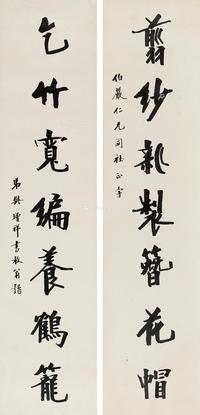 翦纱新製簪花帽
伯嚴仁兄同社正字
乞竹寬編養鶴籠
弟樊增祥書放翁語